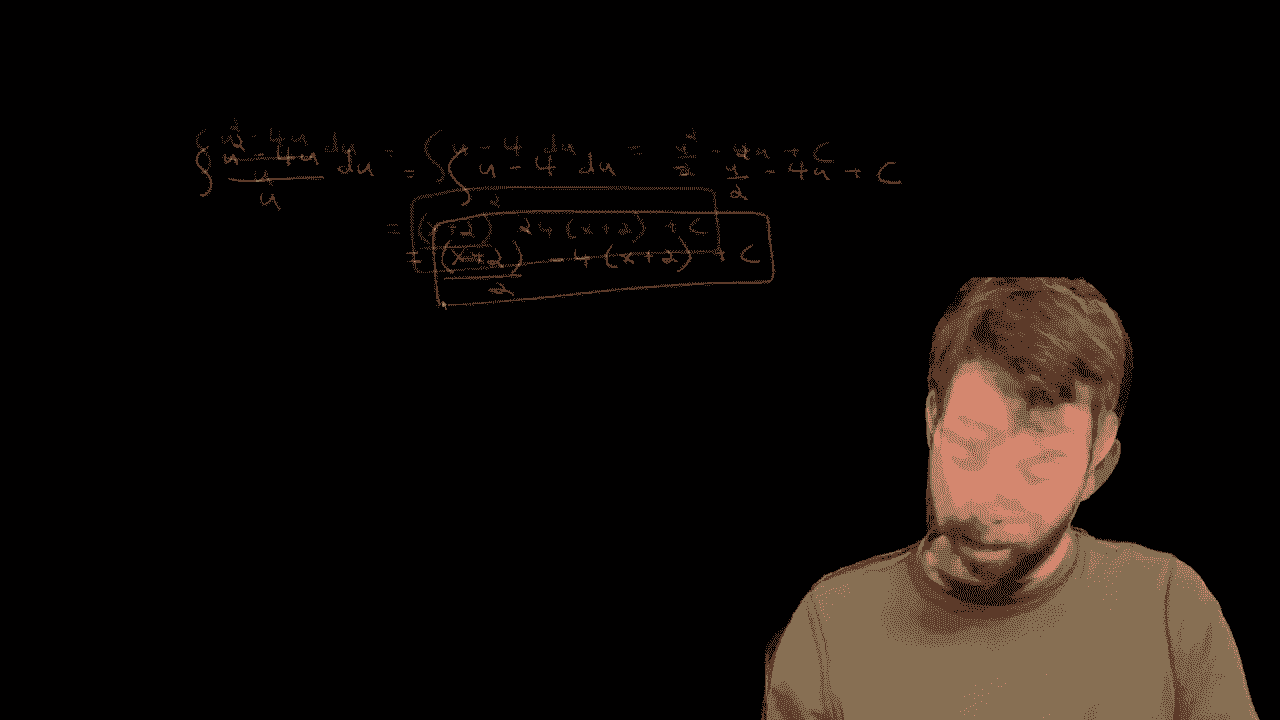 ∫ (u² - 4u)/u du = ∫ u - 4 du = u²/2 - 4u + C
= (x+2)²/2 - 4(x+2) + C